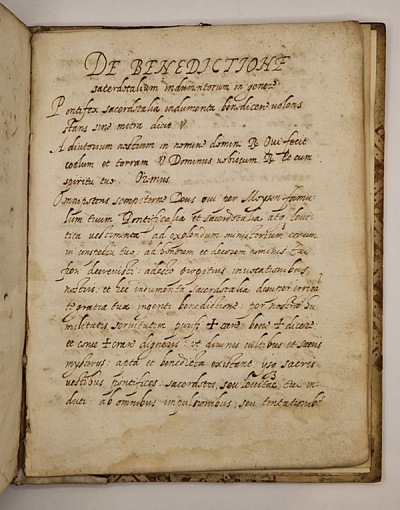 DE BENEDICTIONE
sacerdotalium indumentorum in genere
Pontifex sacerdotalia indumenta benedicere volens
stans sine mitra dicit ℣
Adiutorium nostrum in nomine domini ℟ Qui fecit
coelum et terram ℣ Dominus vobiscum ℟ Et cum
spiritu tuo. Oremus
Omnipotens sempiterne Deus qui per Moysen famu
lum tuum Pontificalia et sacerdotalia atq levi
tica vestimenta ad explendum ministerium eorum
in conspectu tuo, ad honorem et decorem nominis tui
decrevisti: adesto propitius invocationibus
nostris: et hec indumenta sacerdotalia desuper irriga
te gratia tua ingenti benedictione: per nostre hu
militatis servitutem puri ✝ care bene ✝ dicere
et conse ✝ crare digneris: ut divinis cultibus et sacris
mysteriis apta et benedicta existant
vestibus pontifices sacerdotes, seu levitae tui in
duti: ab omnibus impulsionibus, seu tentationibˀ